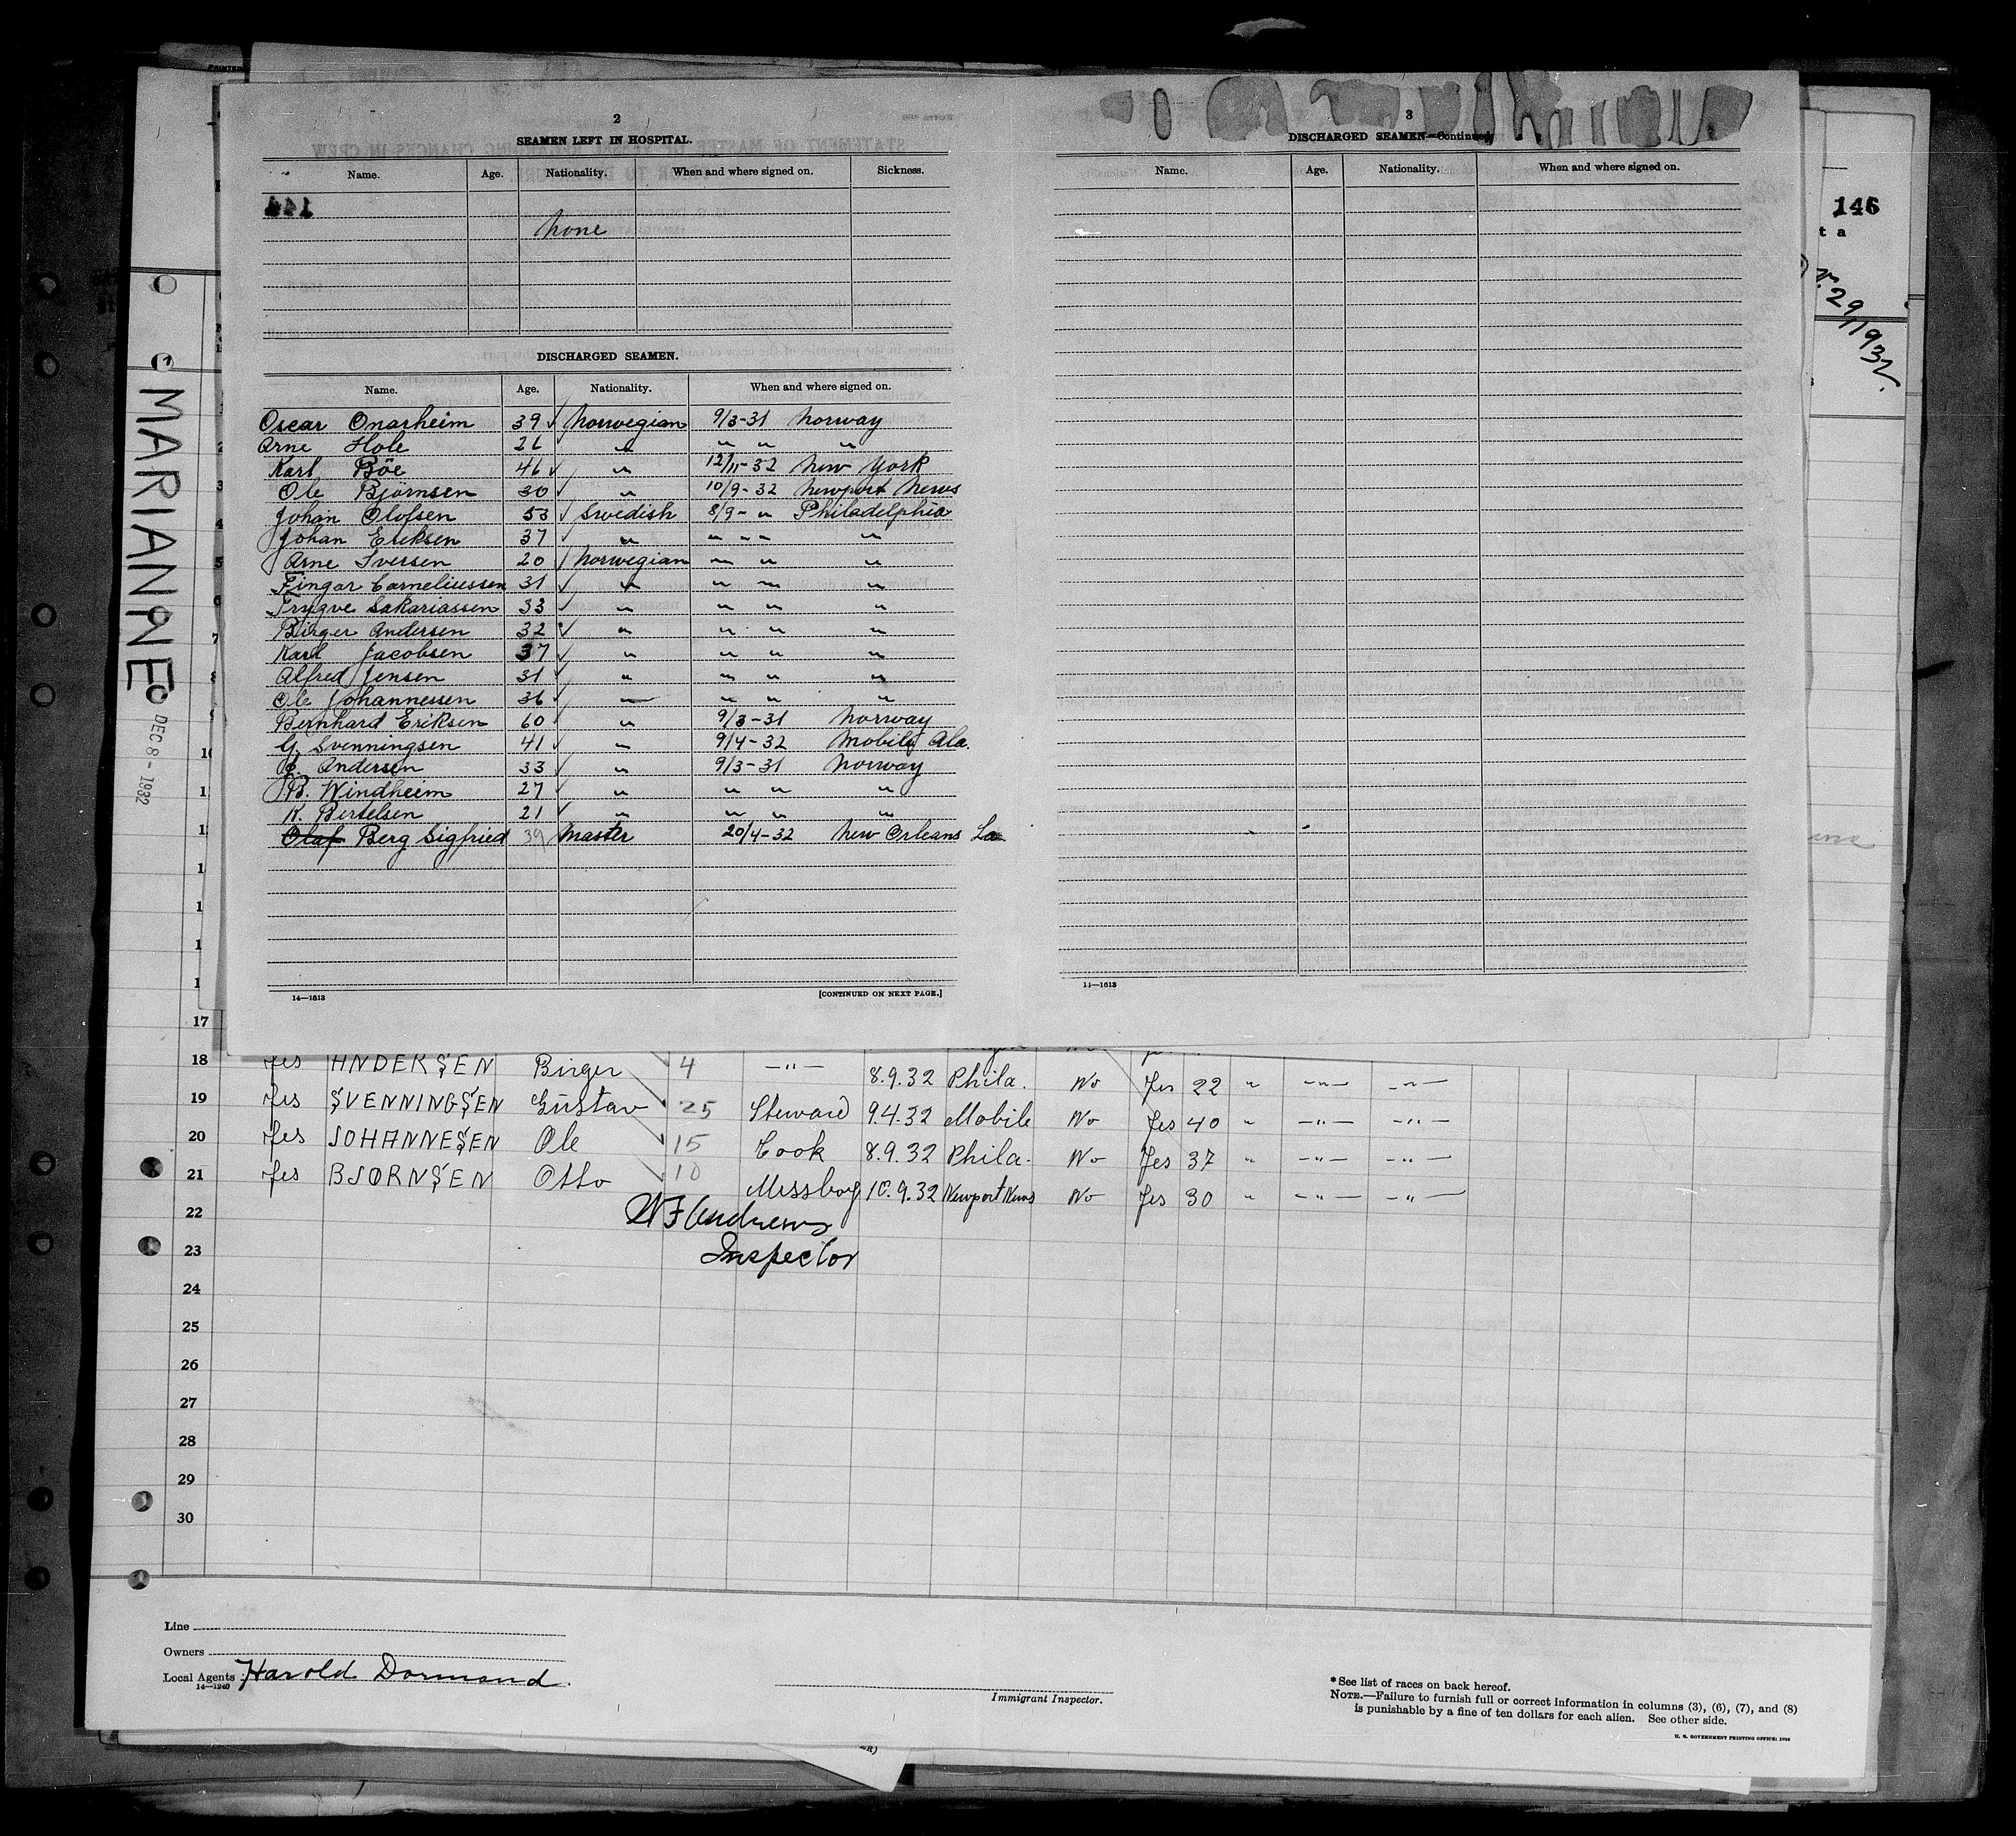 2
SEAMEN LEFT IN HOSPITAL.
Name. Age. Nationality. When and where signed on. Sickness.
144
None
DISCHARGED SEAMEN.
Name. Age. Nationality. When and where signed on.
Oscar Onarheim 39 ✓ Norwegian 9/3-31 Norway
Arne Hole 26 ✓ " " " "
Karl Böe 46 ✓ " 12/11-32 New York
Ole Bjørnsen 30 ✓ " 10/9-32 Newport News
Johan Olofsen 53 ✓ Swedish 8/9- " Philadelphia
Johan Eriksen 37 ✓ " " " " "
Arne Iversen 20 ✓ Norwegian " " "
Fingar Corneliussen 31 ✓ " " " "
Trygve Sakariassen 33 ✓ " " " "
Birger Andersen 32 ✓ " " " "
Karl Jacobsen 37 ✓ " " " "
Alfred Jensen 31 ✓ " " " "
Ole Johannessen 36 ✓ " " " "
Bernhard Eriksen 60 ✓ " 9/3-31 Norway
G. Svenningsen 41 ✓ " 9/4-32 Mobile Ala.
Andersen 33 ✓ " 9/3-31 Norway
B. Windheim 27 ✓ " " " "
K. Bertelsen 21 ✓ " " " "
Olaf Berg Sigfried 39 Master 20/4-32 New Orleans La
14—1613 [CONTINUED ON NEXT PAGE.]
3
DISCHARGED SEAMEN—Continued
Name. Age. Nationality. When and where signed on.
14—1613
146
t a
29/1932.
MARIANNE
DEC 8 - 1932
17
18 Yes ANDERSEN Birger 4 —"— 8.9.32 Phila. No Yes 22 " —"— —"—
19 Yes SVENNINGSEN Gustav 25 Steward 9.4.32 Mobile No Yes 40 " —"— —"—
20 Yes JOHANNESEN Ole 15 Cook 8.9.32 Phila. No Yes 37 " —"— —"—
21 Yes BJØRNSEN Otto 10 Messboy 10.9.32 Newport News No Yes 30 " —"— —"—
22 Andrews
23 Inspector
24
25
26
27
28
29
30
Line
Owners
Local Agents Harold Dormand.
14—1240
Immigrant Inspector.
*See list of races on back hereof.
NOTE.—Failure to furnish full or correct information in columns (3), (6), (7), and (8)
is punishable by a fine of ten dollars for each alien. See other side.
U. S. GOVERNMENT PRINTING OFFICE: 1930